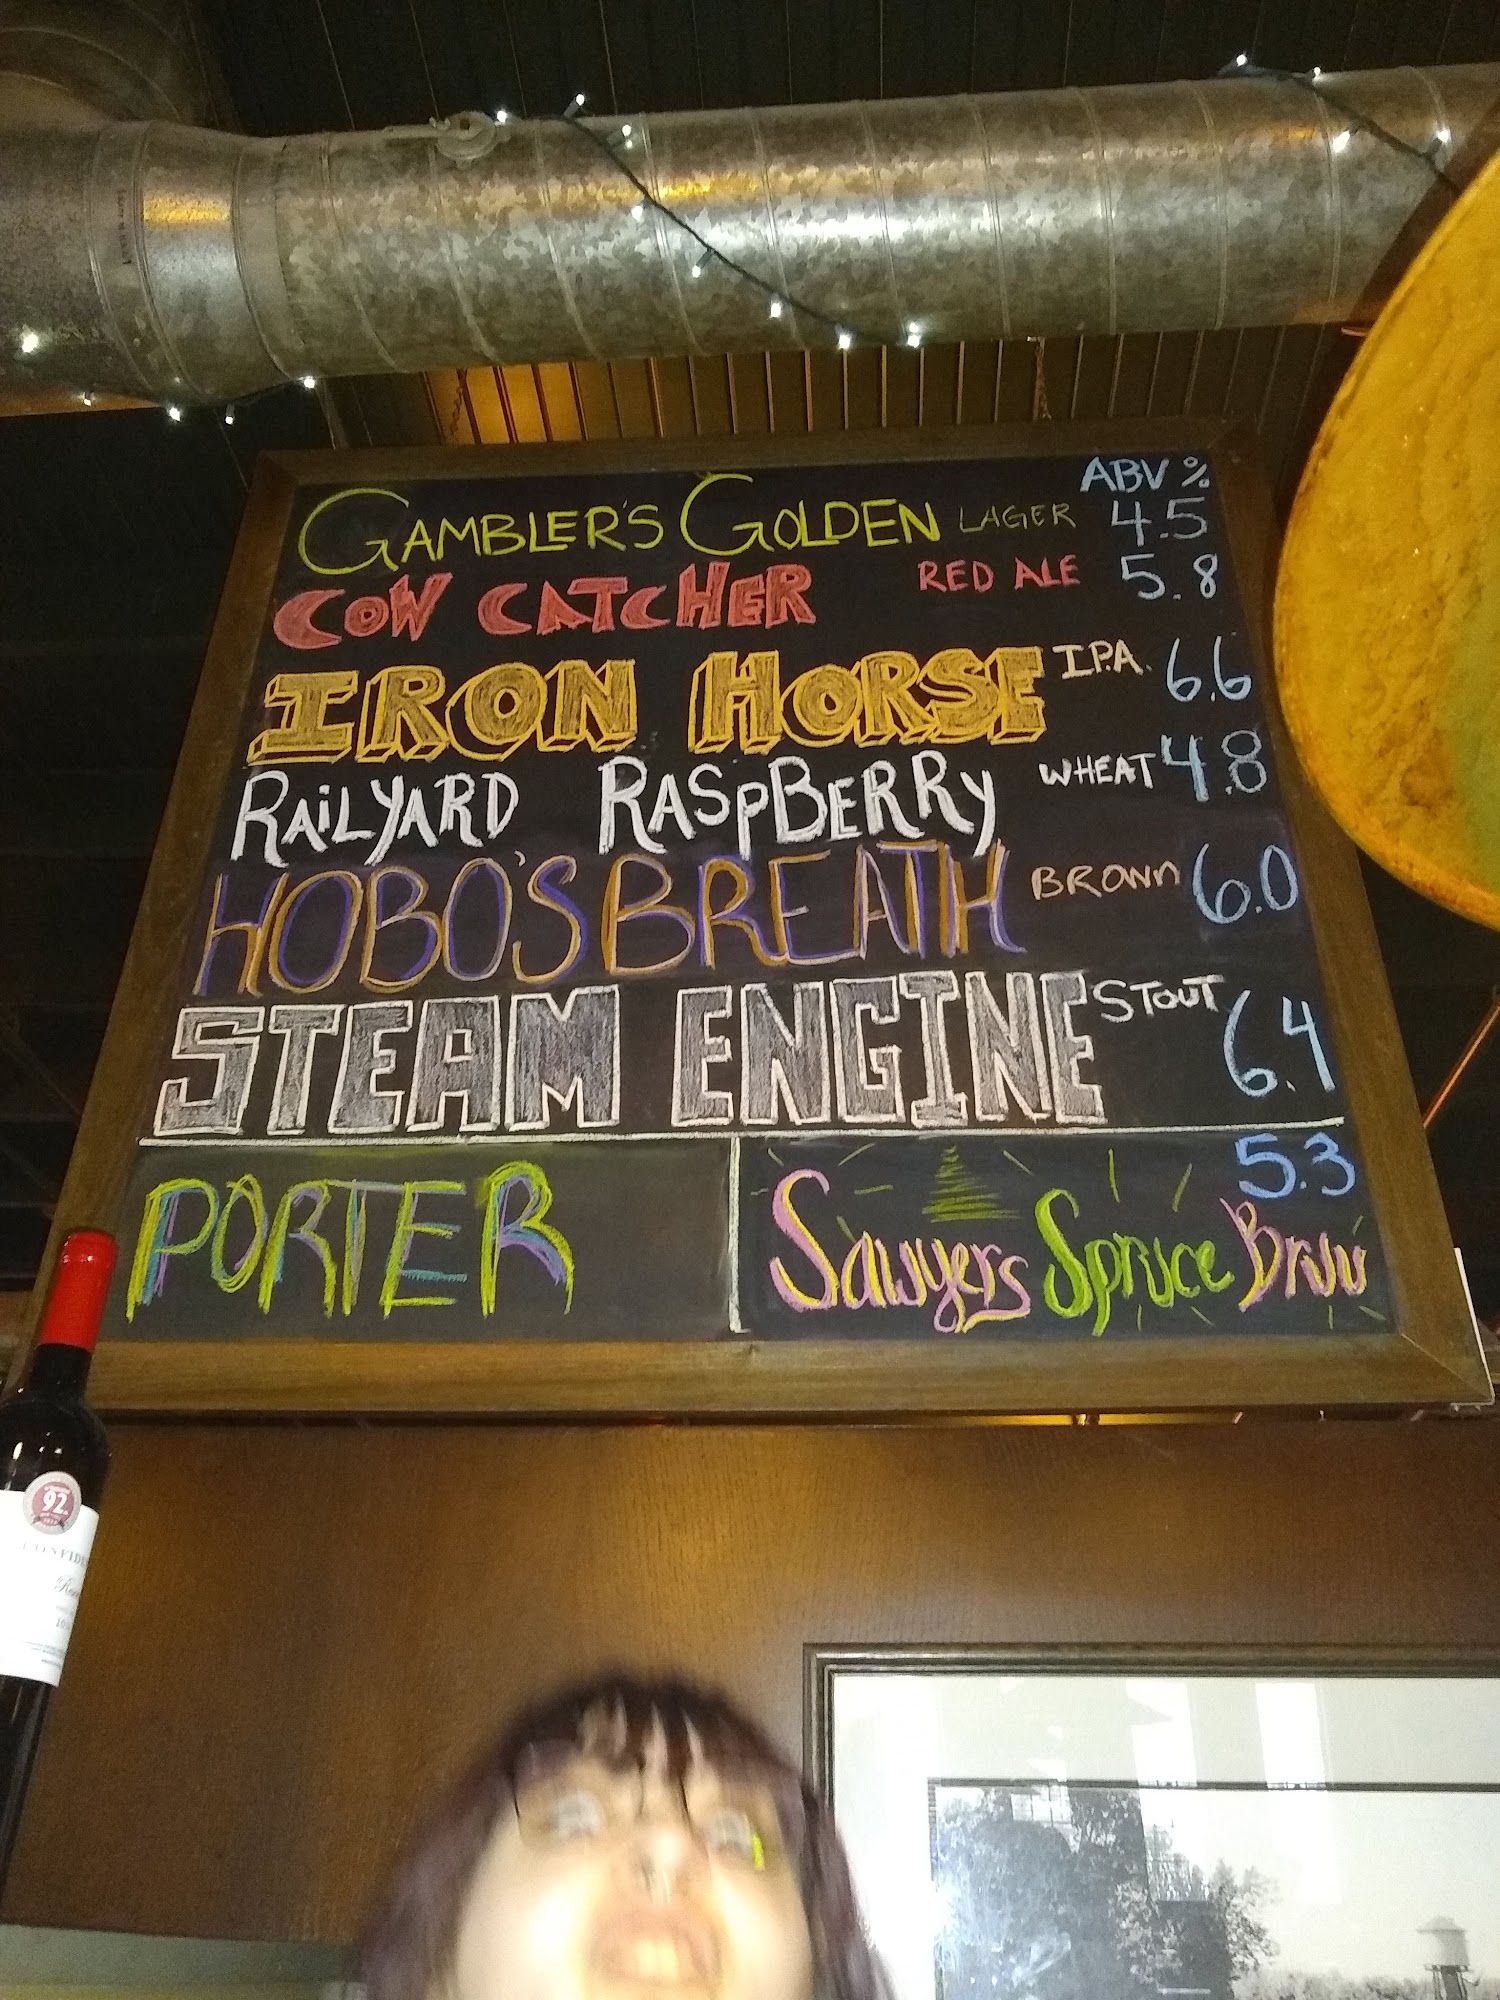 ABV %
GAMBLER'S GOLDEN LAGER 4.5
COW CATCHER RED ALE 5.8
IRON HORSE I.P.A. 6.6
RAILYARD RASPBERRY WHEAT 4.8
HOBO'S BREATH BROWN 6.0
STEAM ENGINE STOUT 6.4
PORTER
5.3
Sawyers Spruce Bruu
92